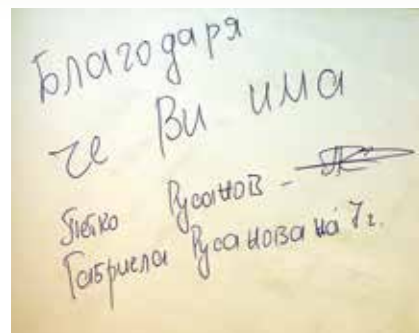 Благодаря
че Ви има
Петко Русанов -
Габриела Русанова на 7г.